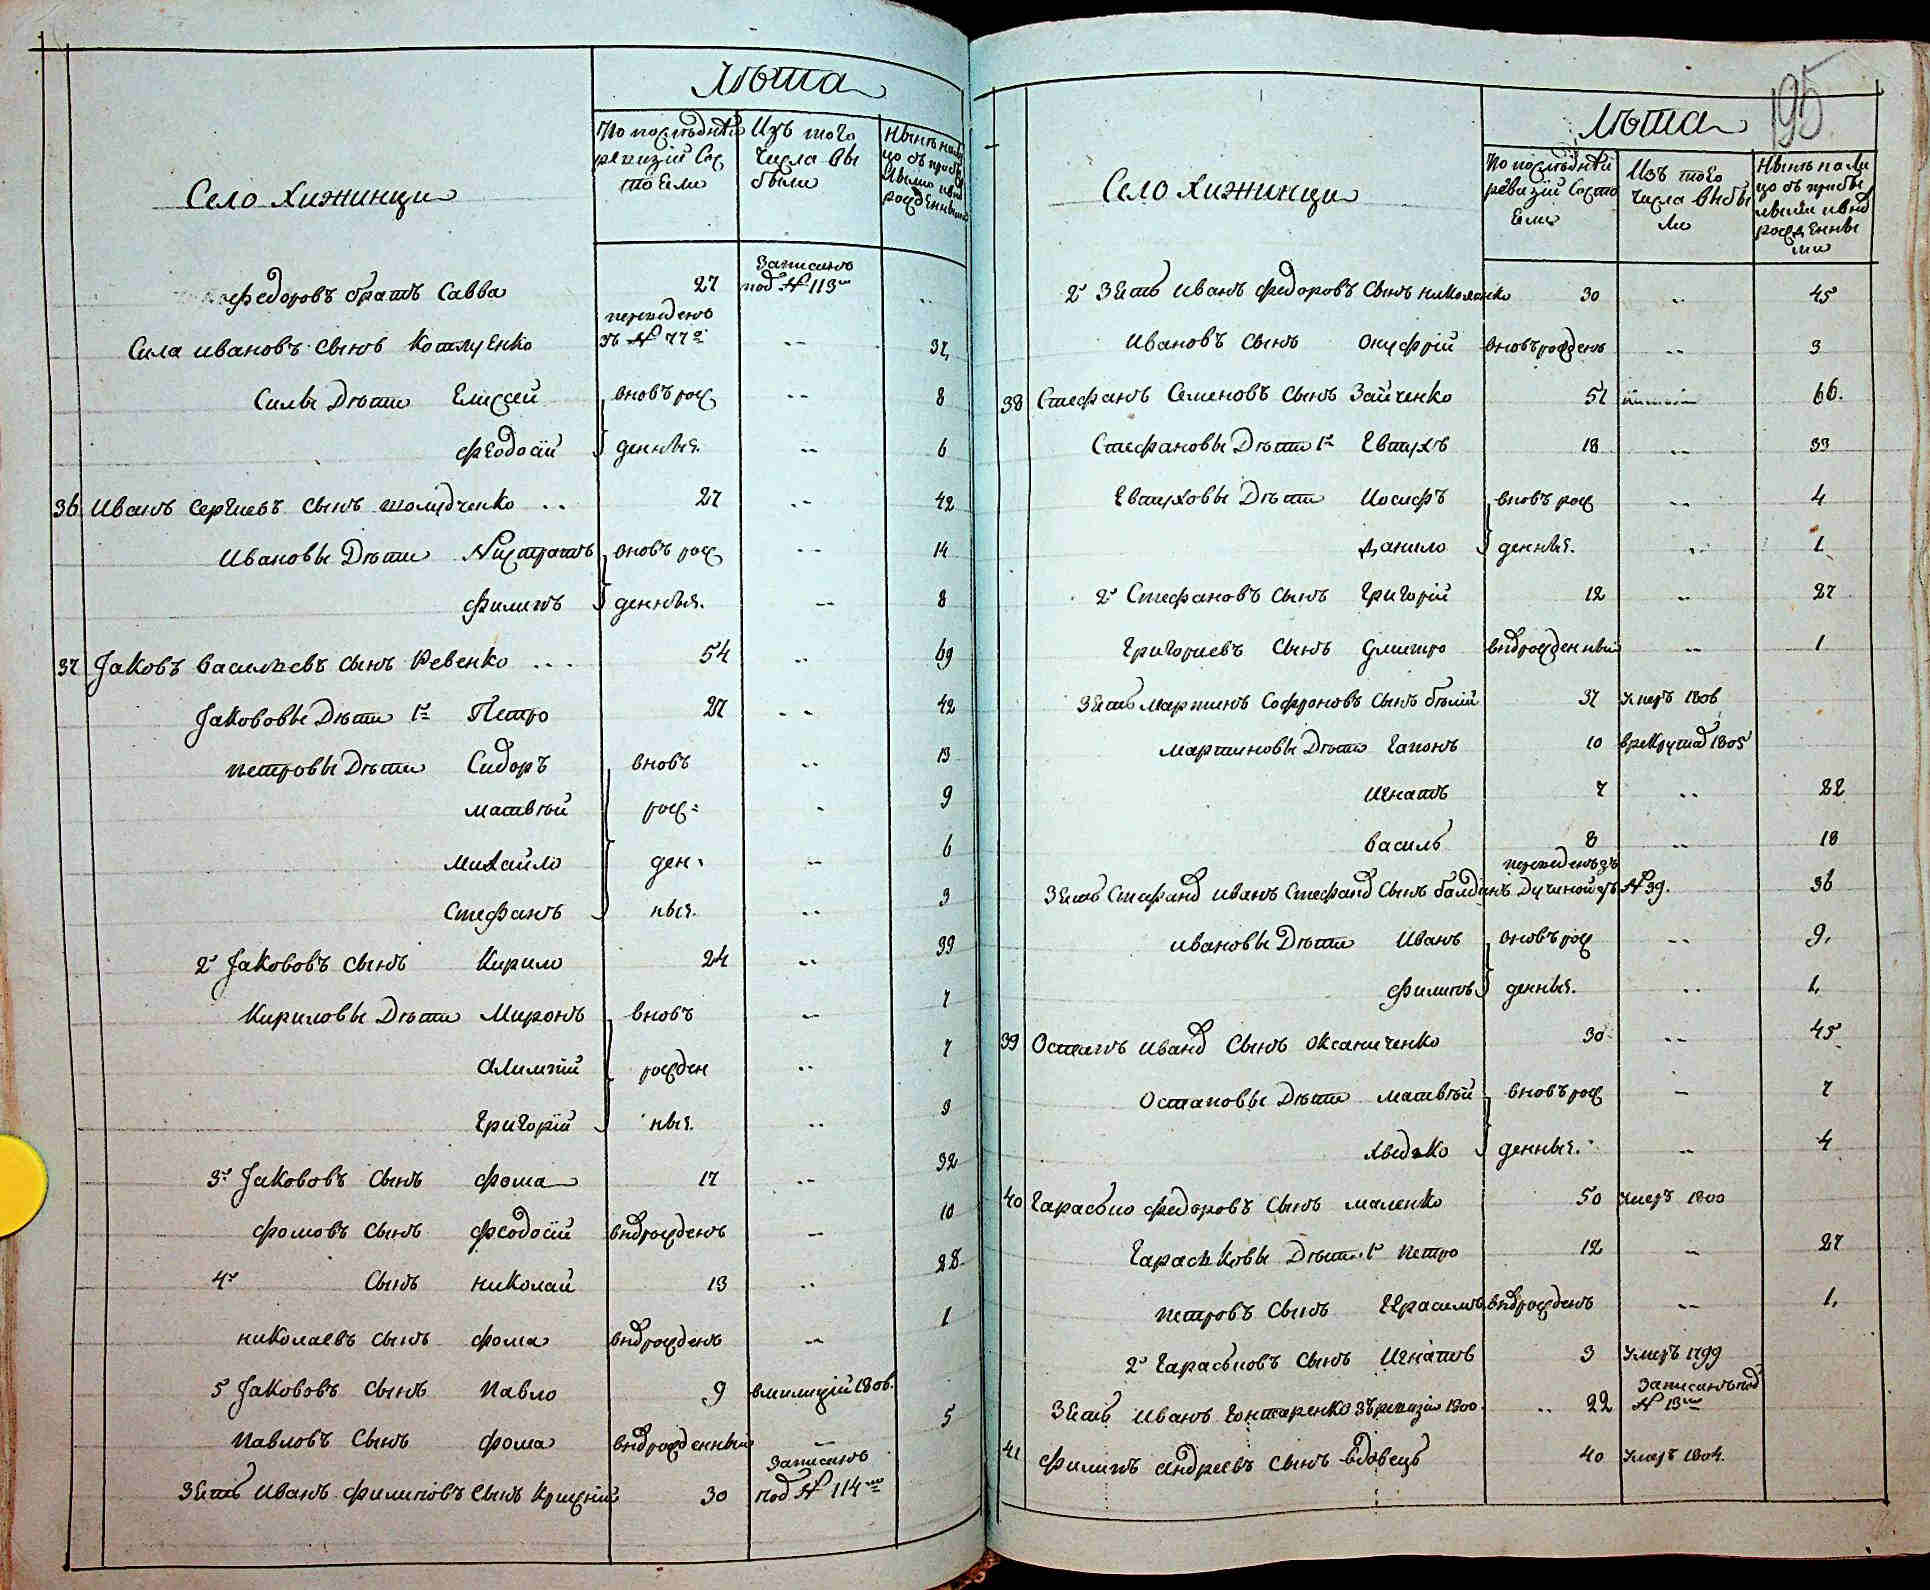 Лѣта
Село Хижинци
По послѣдней ревизіи состояли
Изъ того числа выбыли
Нынѣ на лицо съ прибылыми и вновь рожденными
Федоровъ братъ Савва 27 Записанъ под № 113м ..
Сила Ивановъ сынъ Котлученко переведенъ зъ № 77о .. 37
Силы Дѣти Елисей вновъ рож .. 8
Феодосій денныя. .. 6
36 Иванъ Сергиевъ сынъ .. 27 .. 42
Ивановы Дѣти вновъ рож .. 14
Филипъ денныя. .. 8
37 Jаковъ Васильевъ сынъ Ревенко ... 54 .. 69
Jакововы Дѣти 1й Петро 27 .. 42
Петровы Дѣти Сидоръ вновъ .. 13
Матвѣй рож= .. 9
Михайло ден= .. 6
Стефанъ ныя. .. 3
2й Jакововъ сынъ Кирило 24 .. 39
Кириловы Дѣти Миронъ вновъ .. 7
Алимпій рожден .. 7
Григорій ныя. .. 3
3й Jакововъ сынъ Фома 17 .. 32
Фомовъ сынъ Феодосій внов рожденъ .. 10
4й сынъ Николай 13 .. 28
Николаевъ сынъ Фома внов рожденъ .. 1
5 Jакововъ сынъ Павло 9 вмилиціи 1806.
Павловъ сынъ Фома внов рожденный .. 5
Зять Иванъ Филиповъ сынъ 30 Записанъ под № 114м
195
Лѣта
Село Хижинци
По послѣдней ревизіи состояли
Изъ того числа выбыли
Нынѣ на лицо съ прибылыми и вновь рожденными
2й Зять Иванъ Федоровъ сынъ Николенко 30 .. 45
Ивановъ сынъ Онуфрій вновърожденъ .. 3
38 Стефанъ Семеновъ сынъ Зайченко 51 66.
Стефановы Дѣти 1й Евтухъ 18 .. 33
Евтуховы Дѣти Иосифъ вновъ рож .. 4
Данило денныя. .. 1
2й Стефановъ сынъ Григорій 12 .. 27
Григориевъ сынъ Дмитро внов рожденный .. 1
Зять Мартинъ Софроновъ сынъ Бѣлій 37 Умеръ 1806
Мартиновы Дѣти Гапонъ 10 врекрута 1805
Игнатъ 7 .. 22
Василь 8 .. 18
Зять Стефанов Иванъ Стефанов сынъ переведенъ зъ № 39. 36
Ивановы Дѣти Иванъ вновъ рож .. 9.
Филипъ денныя. .. 1.
39 Остапъ Иванов сынъ Оксаниченко 30 .. 45
Остаповы Дѣти Матвѣй вновъ рож .. 7
Хведько денныя. .. 4
40 Гарасько Федоровъ сынъ Маленко 50 Умеръ 1800
Гараськовы Дѣти 1й Петро 12 .. 27
Петровъ сынъ Герасимъ внов рожденъ .. 1.
2й Гараськовъ сынъ Игнатъ 3 Умеръ 1799
Зять Иванъ Гонтаренко зъ ревизіи 1800. .. 22 Записанъ под № 13м
41 Филипъ Андреевъ сынъ Вдовецъ 40 Умеръ 1804.